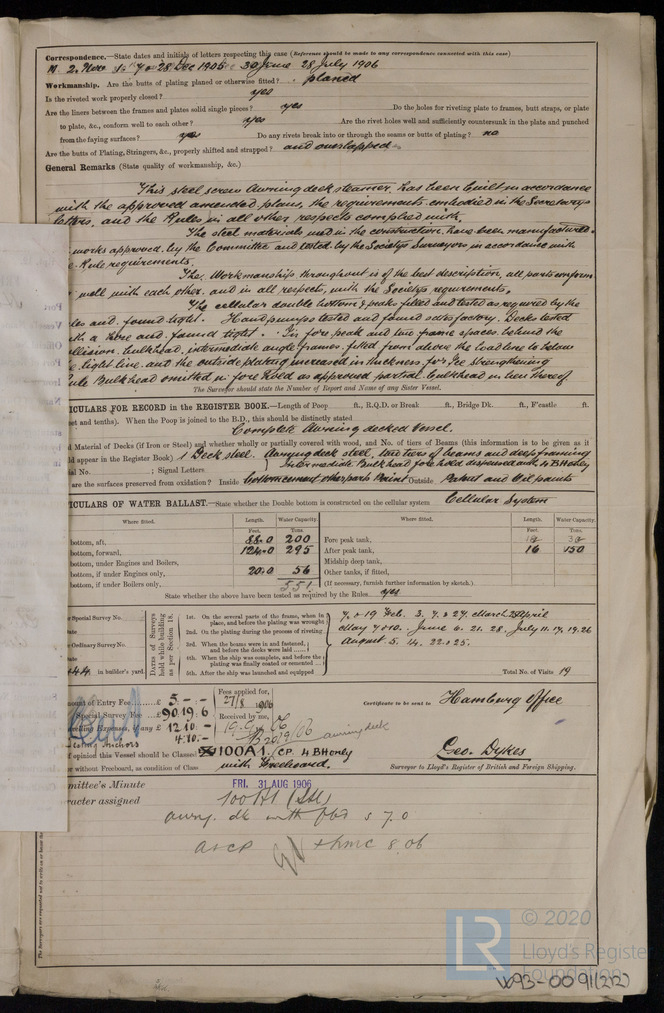 Correspondence.—State dates and initials of letters respecting this case (Reference should be made to any correspondence connected with this case)
M. 2. Nov 28 Dec 1905 30 June 28 July 1906
Workmanship. Are the butts of plating planed or otherwise fitted? planed
Is the riveted work properly closed? yes
Are the liners between the frames and plates solid single pieces? yes Do the holes for riveting plate to frames, butt straps, or plate
to plate, &c., conform well to each other? yes Are the rivet holes well and sufficiently countersunk in the plate and punched
from the faying surfaces? yes Do any rivets break into or through the seams or butts of plating? no
Are the butts of Plating, Stringers, &c., properly shifted and strapped? and overlapped
General Remarks (State quality of workmanship, &c.)
This steel screw Awning deck steamer has been built in accordance
with the approved amended plans, the requirements embodied in the Secretarys
letters, and the Rules in all other respects complied with.
The steel materials used in the construction have been manufactured
works approved by the Committee and tested by the Societys Surveyors in accordance with
Rule requirements.
The Workmanship throughout is of the best description, all parts conform
well with each other and in all respects, with the Societys requirements.
The cellular double bottom & peaks filled and tested as required by the
les and found tight. Hand pumps tested and found satisfactory. Decks tested
th a hose and found tight. In fore peak and two frame spaces behind the
llision bulkhead, intermediate angle frames fitted from above the load line to below
light line and the outside plating increased in thickness for Ice strengthening
Bulkhead omitted in fore hold as approved partial bulkhead in lieu thereof
The Surveyor should state the Number of Report and Name of any Sister Vessel.
ICULARS FOR RECORD in the REGISTER BOOK.—Length of Poop ft., R.Q.D. or Break ft., Bridge Dk. ft., F'castle ft.
et and tenths). When the Poop is joined to the B.D., this should be distinctly stated
Complete Awning decked Vessel.
d Material of Decks (if Iron or Steel) and whether wholly or partially covered with wood, and No. of tiers of Beams (this information is to be given as it
ld appear in the Register Book) 1 Deck steel. Awning deck steel, two tiers of beams and deep framing
al No. ; Signal Letters Intermediate Bulkhead fore hold dispensed with 4 BHonly
are the surfaces preserved from oxidation? Inside bottom cement other parts Paint Outside Patent and Oil paints
ICULARS OF WATER BALLAST.—State whether the Double bottom is constructed on the cellular system Cellular System
Where fitted. Length. Water Capacity. Where fitted. Length. Water Capacity.
Feet. Tons. Feet. Tons.
bottom, aft, 88.0 200 Fore peak tank,
bottom, forward, 124.0 295 After peak tank, 16 150
bottom, under Engines and Boilers, Midship deep tank,
bottom, if under Engines only, 20.0 56 Other tanks, if fitted,
bottom, if under Boilers only, 551 (If necessary, furnish further information by sketch.)
State whether the above have been tested as required by the Rules yes
Special Survey No.
Ordinary Survey No.
in builder's yard.
Dates of Surveys held while building as per Section 18.
1st. On the several parts of the frame, when in place, and before the plating was wrought
2nd. On the plating during the process of riveting
3rd. When the beams were in and fastened, and before the decks were laid
4th. When the ship was complete, and before the plating was finally coated or cemented
5th. After the ship was launched and equipped
7. & 19 Feb. 3. 7. & 27. March 25 April
May 7 & 10. June 6. 21. 28. July 11. 17. 19. 26
August 5. 14. 22 & 25.
Total No. of Visits 19
mount of Entry Fee £ 5 – –
Special Survey Fee £ 90.19.6
elling Expenses, if any £ 12.10.–
Anchors 4.10.–
Fees applied for,
27/8 1906
Received by me,
awning deck
Certificate to be sent to Hamburg Office
opinion this Vessel should be Classed 100A1. CP. 4 BHonly
or without Freeboard, as condition of Class with Freeboard.
Geo. Dykes
Surveyor to Lloyd's Register of British and Foreign Shipping.
mittee's Minute FRI. 31 AUG 1906
racter assigned 100A1 (Stl)
awng. dk with fbd
A&CP + LMC 8.06
© 2020
Lloyd's Register
Foundation
W93-0091(2/2)